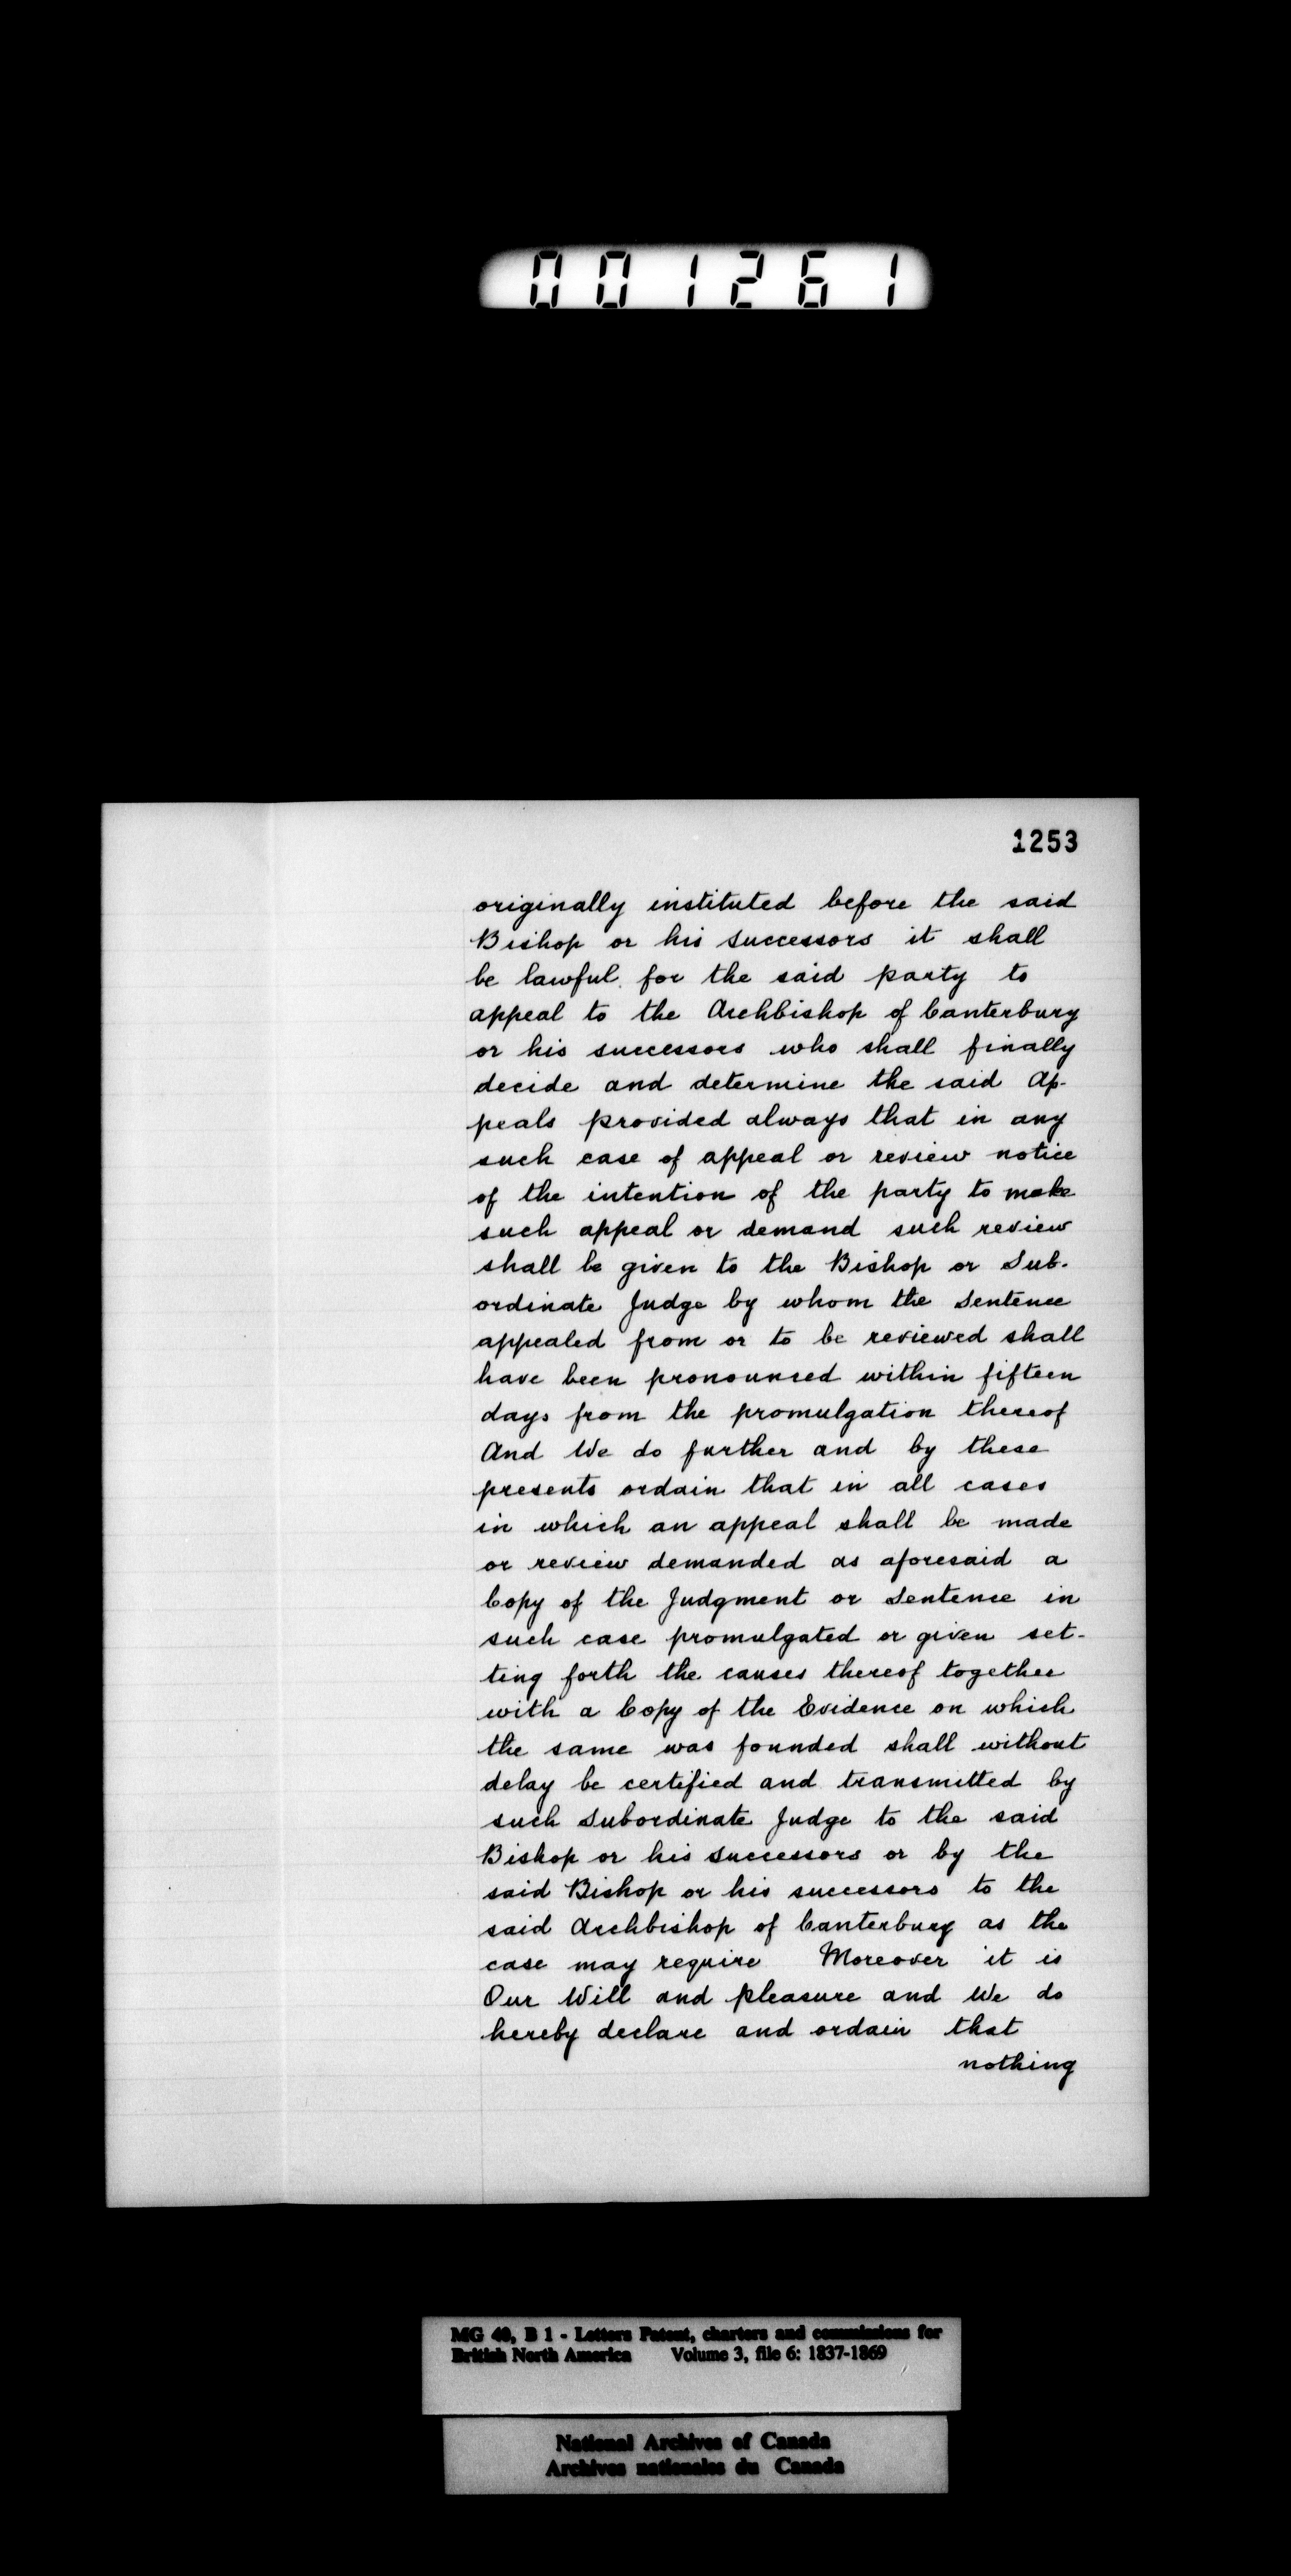 001261
1253
originally instituted before the said
Bishop or his Successors it shall
be lawful for the said party to
appeal to the Archbishop of Canterbury
or his successors who shall finally
decide and determine the said Ap-
peals provided always that in any
such case of appeal or review notice
of the intention of the party to make
such appeal or demand such review
shall be given to the Bishop or Sub-
ordinate Judge by whom the Sentence
appealed from or to be reviewed shall
have been pronounced within fifteen
days from the promulgation thereof
And We do further and by these
presents ordain that in all cases
in which an appeal shall be made
or review demanded as aforesaid a
Copy of the Judgment or Sentence in
such case promulgated or given set-
ting forth the causes thereof together
with a Copy of the Evidence on which
the same was founded shall without
delay be certified and transmitted by
such Subordinate Judge to the said
Bishop or his Successors or by the
said Bishop or his successors to the
said Archbishop of Canterbury as the
case may require Moreover it is
Our Will and pleasure and We do
hereby declare and ordain that
nothing
MG 40, B 1 - Letters Patent, charters and commissions for
British North America Volume 3, file 6: 1837-1869
National Archives of Canada
Archives nationales du Canada